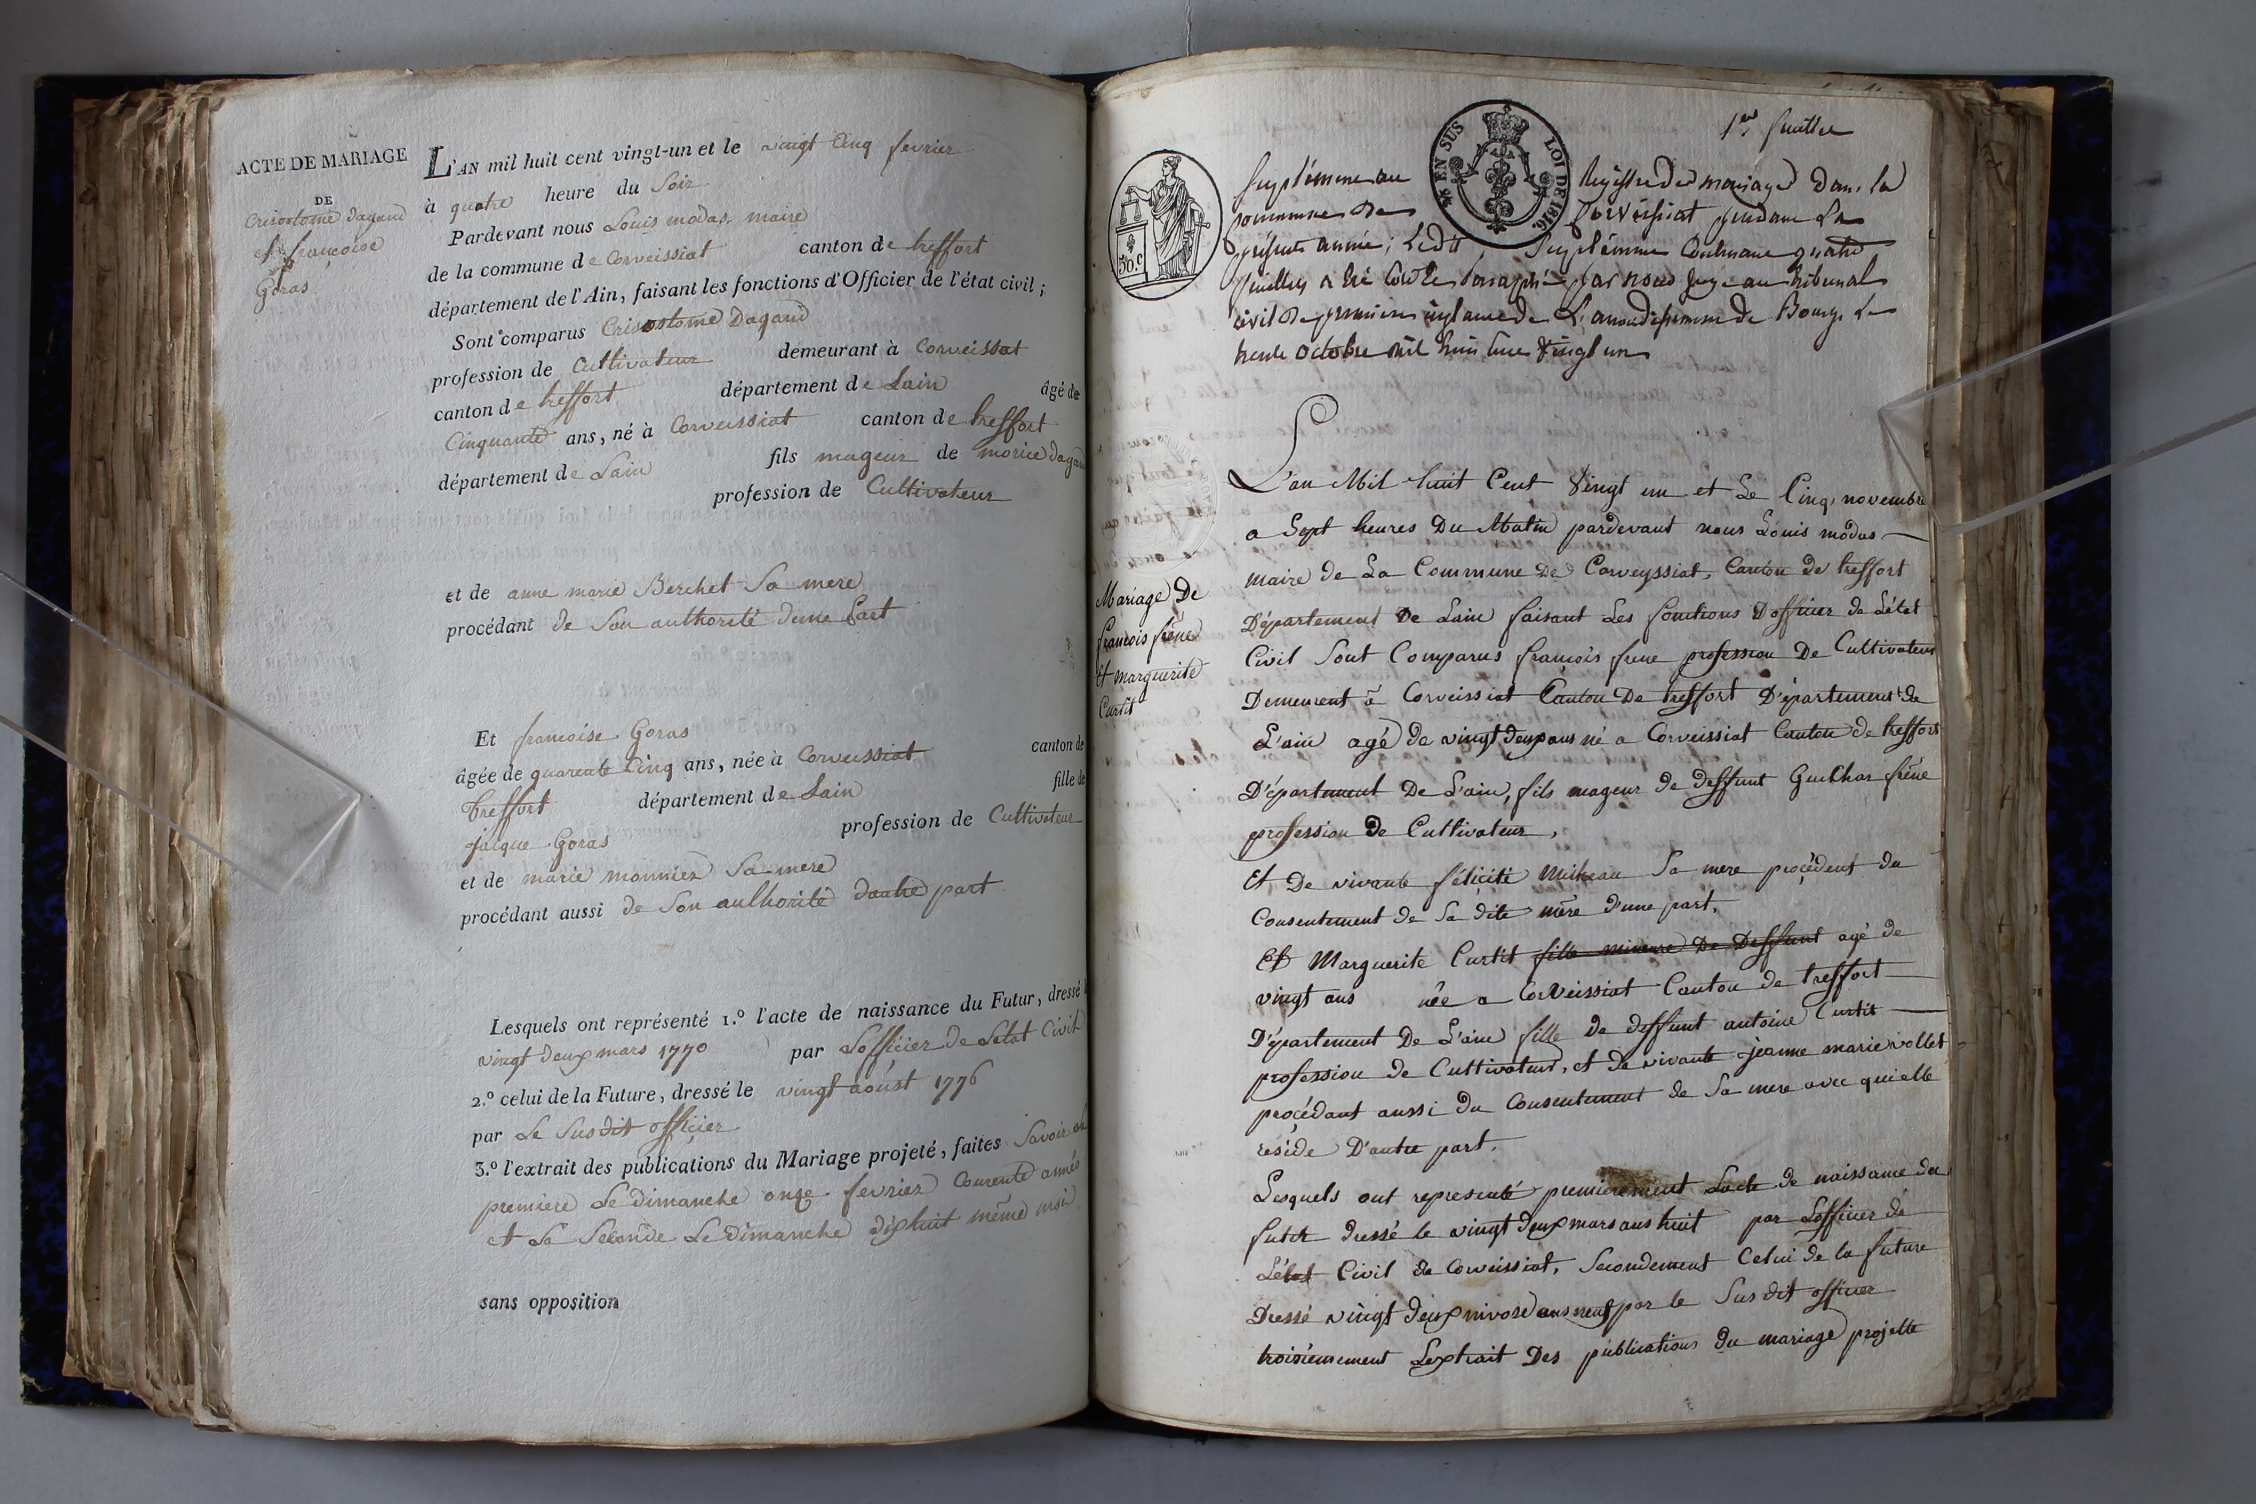 ACTE DE MARIAGE
DE
Crisostome dagand
et francoise
Goras
L'AN mil huit cent vingt-un et le vingt Cinq fevrier
à quatre heure du Soir
Pardevant nous Louis modas maire
de la commune de Corveissiat canton de treffort
département de l'Ain, faisant les fonctions d'Officier de l'état civil ;
Sont comparus Crisostome Dagand
profession de Cultivateur demeurant à Corveissiat
canton de treffort département de Lain âgé de
Cinquante ans, né à Corveissiat canton de treffort
département de Lain fils mageur de morice dagan
profession de Cultivateur
et de anne marie Berchet Sa mere
procédant de Son authorité dune Part
Et francoise Goras
âgée de quarente Cinq ans, née à Corveissiat canton de
treffort département de Lain fille de
jacque Goras profession de Cultivateur
et de marie monnier Sa mere
procédant aussi de Son authorité dautre part
Lesquels ont représenté 1.º l'acte de naissance du Futur, dressé
vingt deux mars 1770 par Lofficier de Letat Civil
2.º celui de la Future, dressé le vingt aoust 1776
par Le Susdit officier
3.º l'extrait des publications du Mariage projeté, faites Savoir
premiere Le dimanche onze fevrier Courente année
et La Seconde Le Dimanche dixhuit même moi
sans opposition
1er feuillet
30.C
EN SUS LOI DE 1816
Suplément au Registre des mariages dans la
commune de Corveissiat pendant la
présente année ; Ledit Suplément Contenant quatre
feuilles a été Cotté & paraphé par nous juge au tribunal
civil de premiere instance de L'arrondissement de Bourg Le
trente octobre mil huit cent vingt un
L'an Mil huit Cent Vingt un et Le Cinq novembre
a Sept heures Du Matin pardevant nous Louis modas
maire de La Commune De Corveyssiat, Canton de treffort
Département De Lain faisant Les fonctions Dofficier de Létat
Civil Sont Comparus françois frene profession De Cultivateur
Demeurent a Corveissiat Canton De treffort Département de
L'ain agé de vingt deux ans né a Corveissiat Canton de treffort
Département De L'ain, fils mageur de deffunt Guichar frêne
profession de Cultivateur,
Et De vivante félicité Mitreau Sa mere procédent du
Consentement de Sa dite mère d'une part,
Mariage De
francois frêne
et marguerite
Curtit
Et Marguerite Curtit fille mineure De Deffunt agé de
vingt ans née a CorVeissiat Canton de treffort
Département De L'ain fille de deffunt antoine Curtit
profession de Cultivateur, et de vivante jeanne marie vollet
procédant aussi du Consentement de Sa mere avec qui elle
réside D'autre part.
Lesquels ont representé premierement Lacte de naissance du
futur dressé le vingt deux mars ans huit par Lofficier de
Létat Civil de Corveissiat, Secondement Celui de la future
Dressé vingt deux nivose ans neuf par le Sus dit officier
troisiemement Lextrait Des publications du mariage projette